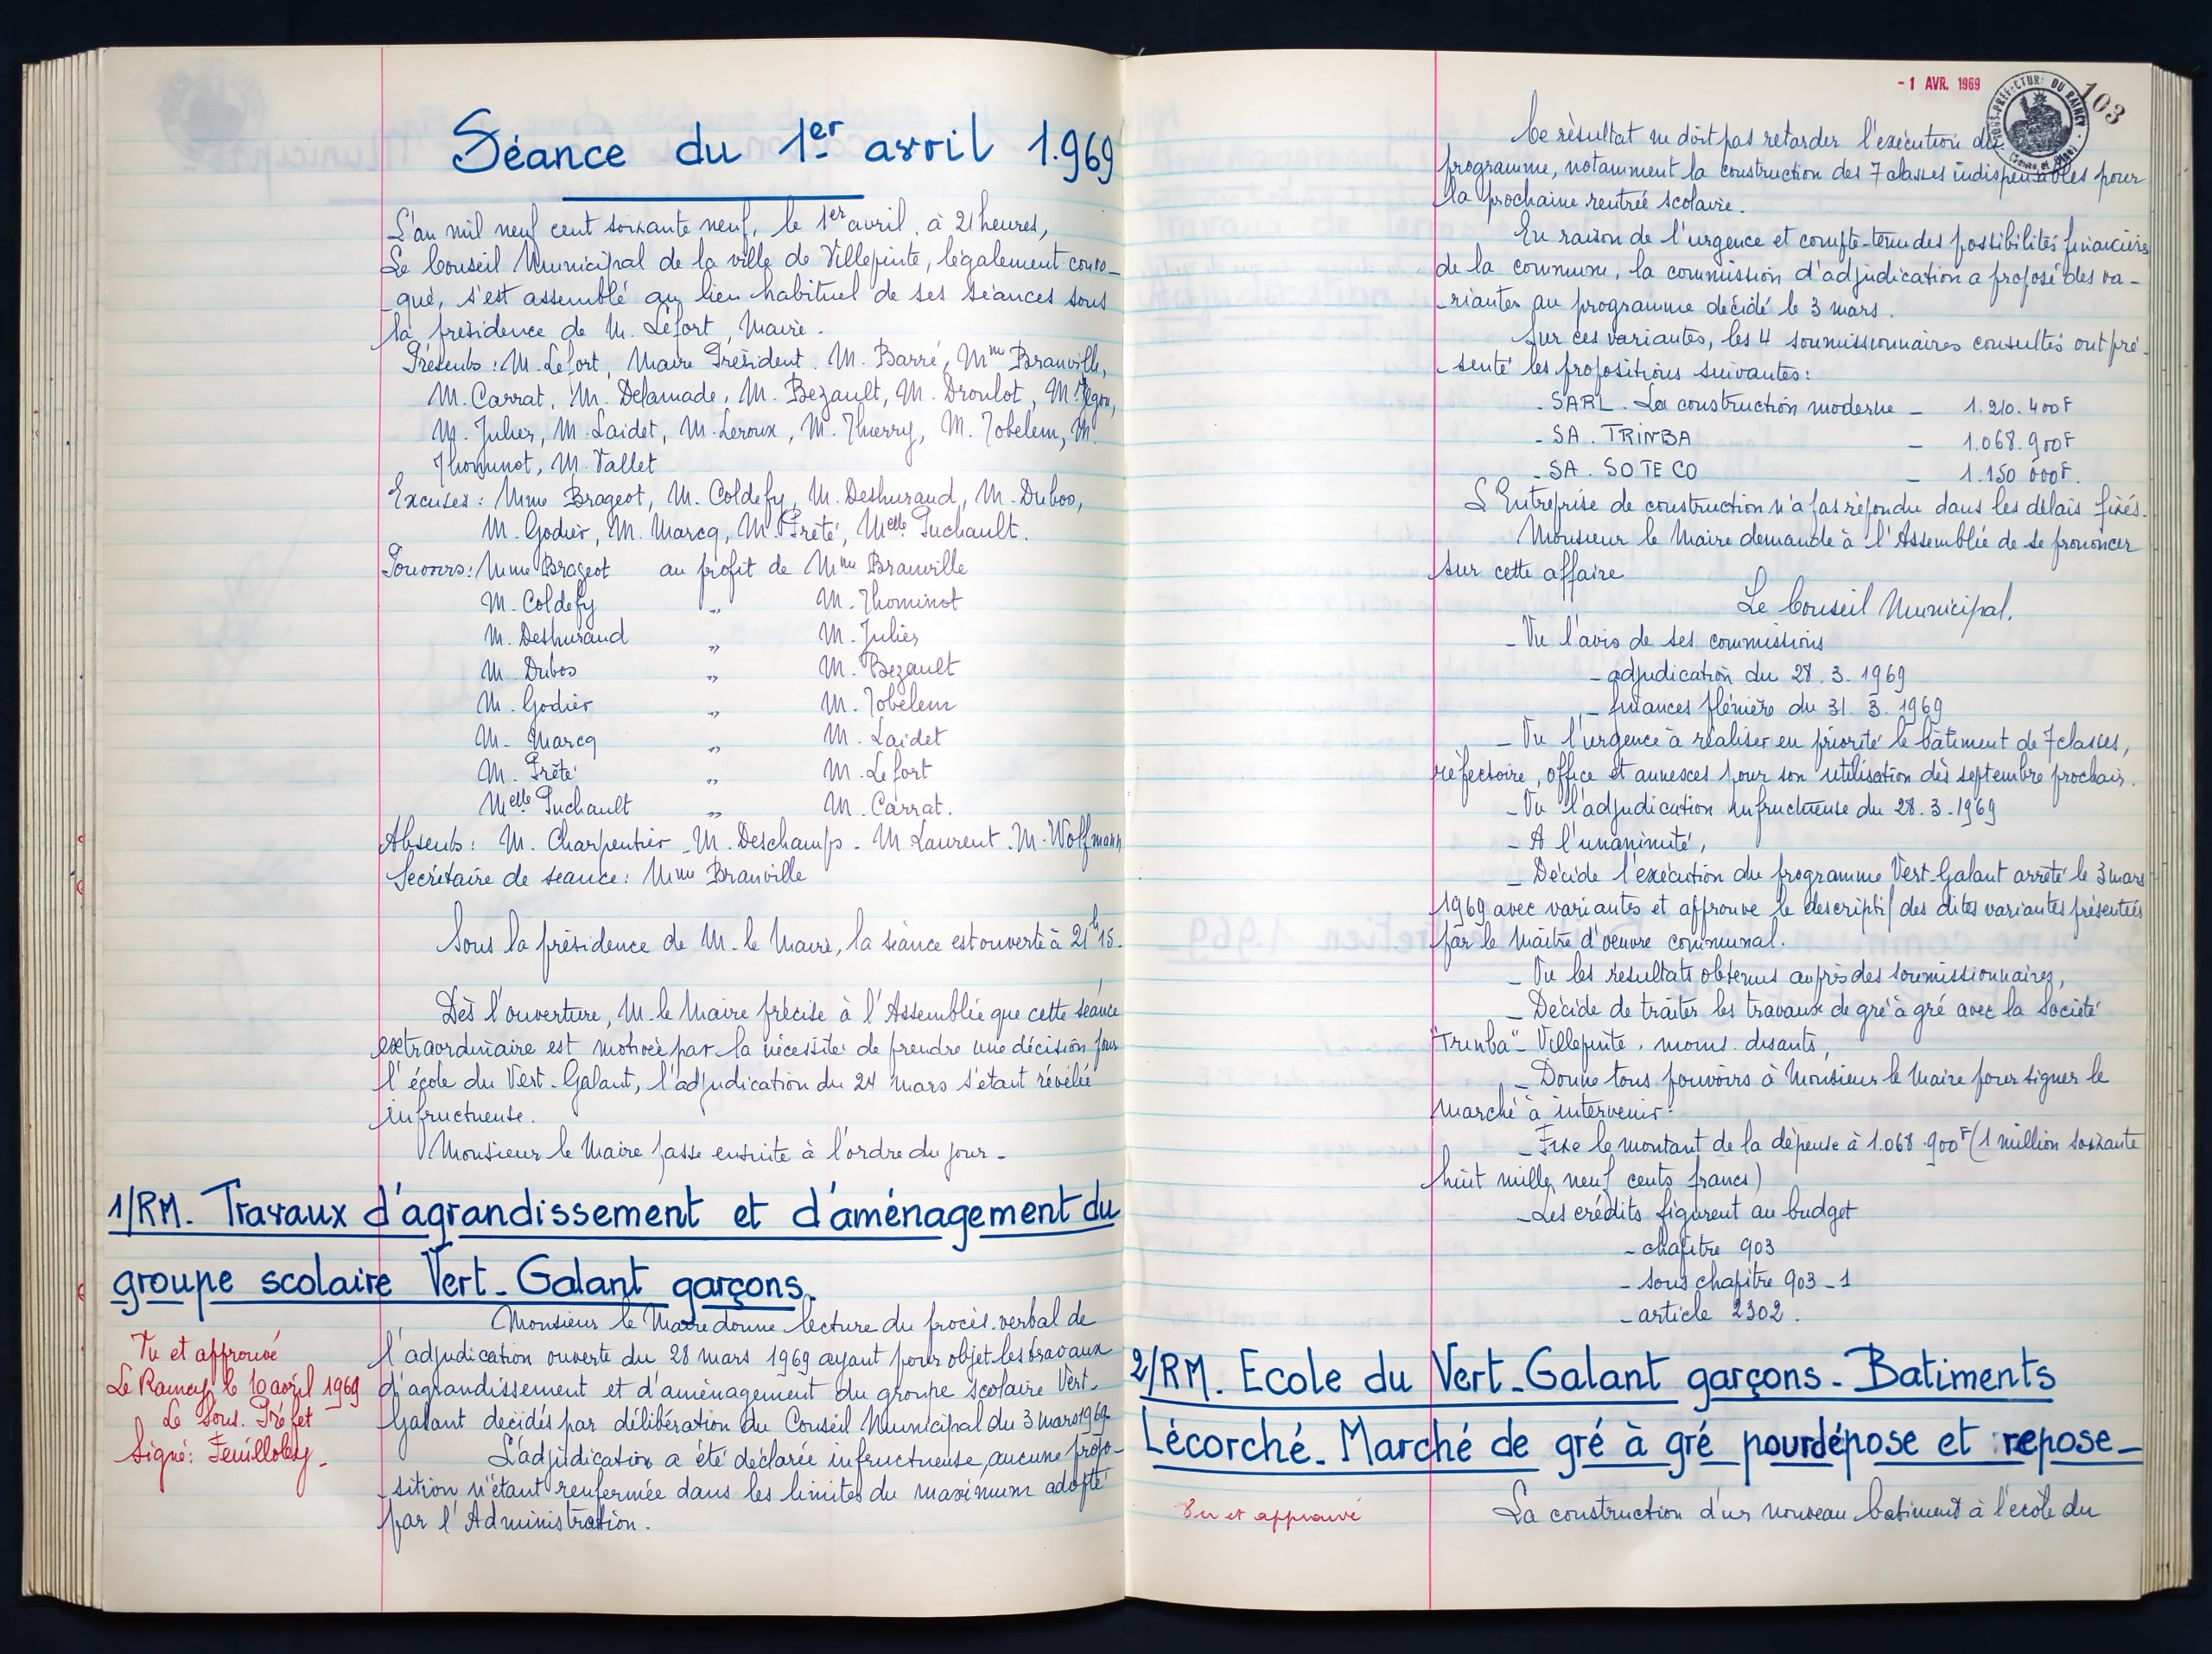 Séance du 1er avril 1.969
L'an mil neuf cent soixante neuf, le 1er avril, à 21 heures,
Le Conseil Municipal de la ville de Villepinte, légalement convo-
-qué, s'est assemblé au lieu habituel de ses séances sous
la présidence de M. Lefort, Maire.
Présents : M. Lefort, Maire Président. M. Barré, Mme Branville,
M. Carrat, M. Delamade, M. Bezault, M. Droulot, M. Jegou,
M. Julier, M. Laidet, M. Leroux, M. Thierry, M. Tobelem, M.
Thominot, M. Vallet
Excusés : Mme Brageot, M. Coldefy, M. Deshuraud, M. Dubos,
M. Godier, M. Marcq, M. Prêté, Melle Puchault.
Pouvoirs : Mme Brageot au profit de Mme Branville
M. Coldefy " M. Thominot
M. Deshuraud " M. Julier
M. Dubos " M. Bezault
M. Godier " M. Tobelem
M. Marcq " M. Laidet
M. Prêté " M. Lefort
Melle Puchault " M. Carrat.
Absents : M. Charpentier - M. Deschamps - M Laurent - M. Wolfmann
Secrétaire de séance : Mme Branville
Sous la présidence de M. le Maire, la séance est ouverte à 21h15.
Dès l'ouverture, M. le Maire précise à l'Assemblée que cette séance
extraordinaire est motivée par la nécessité de prendre une décision pour
l'école du Vert-Galant, l'adjudication du 24 mars s'étant révélée
infructueuse.
Monsieur le Maire passe ensuite à l'ordre du jour -
1/RM. Travaux d'agrandissement et d'aménagement du
groupe scolaire Vert-Galant garçons.
Monsieur le Maire donne lecture du procès-verbal de
l'adjudication ouverte du 28 mars 1969 ayant pour objet les travaux
d'agrandissement et d'aménagement du groupe scolaire Vert-
Galant décidés par délibération du Conseil Municipal du 3 mars 1969
L'adjudication a été déclarée infructueuse, aucune propo-
-sition n'étant renfermée dans les limites du maximum adopté
par l'Administration.
Vu et approuvé
Le Raincy, le 10 avril 1969
Le Sous-Préfet
Signé : Feuilloley -
- 1 AVR. 1969
SOUS-PREFECTURE DU RAINCY
103
Ce résultat ne doit pas retarder l'exécution du
programme, notamment la construction des 7 classes indispensables pour
la prochaine rentrée scolaire.
En raison de l'urgence et compte-tenu des possibilités financières
de la commune, la commission d'adjudication a proposé des va-
-riantes au programme décidé le 3 mars.
Sur ces variantes, les 4 soumissionnaires consultés ont pré-
-senté les propositions suivantes :
- SARL. La construction moderne - 1.210.400F
- SA. TRINBA - 1.068.900F
- SA. SOTECO - 1.150 000F.
L'Entreprise de construction n'a pas répondu dans les délais fixés.
Monsieur le Maire demande à l'Assemblée de se prononcer
sur cette affaire
Le Conseil Municipal.
- Vu l'avis de ses commissions
- adjudication du 28.3.1969
- finances plénière du 31.3.1969
- Vu l'urgence à réaliser en priorité le bâtiment de 7 classes,
réfectoire, office et annexes pour son utilisation dès septembre prochain.
- Vu l'adjudication infructueuse du 28.3.1969
- A l'unanimité,
- Décide l'exécution du programme Vert-Galant arrêté le 3 mars
1969 avec variantes et approuve le descriptif des dites variantes présentées
par le Maître d'oeuvre communal.
- Vu les résultats obtenus auprès des soumissionnaires,
- Décide de traiter les travaux de gré à gré avec la Société
"Trinba" - Villepinte, moins-disants,
- Donne tous pouvoirs à Monsieur le Maire pour signer le
marché à intervenir.
- Fixe le montant de la dépense à 1.068.900F (1 million soixante
huit mille neuf cents francs)
- Les crédits figurent au budget
- chapitre 903
- sous chapitre 903-1
- article 2302.
2/RM. Ecole du Vert-Galant garçons - Batiments
Lécorché - Marché de gré à gré pour dépose et repose -
Vu et approuvé
La construction d'un nouveau batiment à l'école du